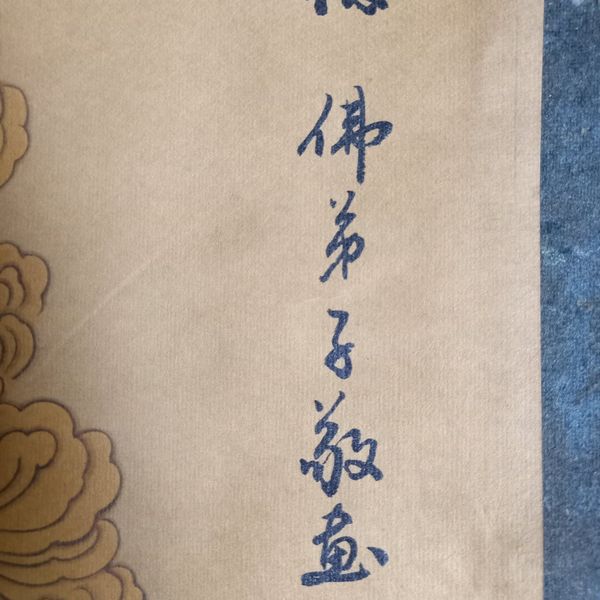 佛弟子敬画